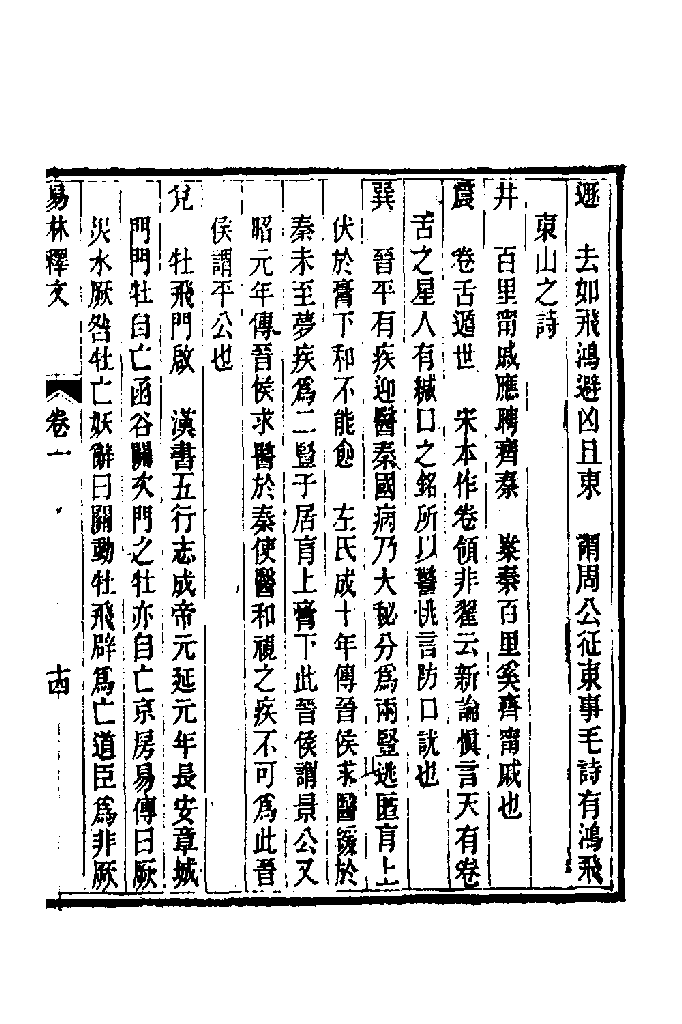 遯　去如飛鴻避凶且東　謂周公征東事毛詩有鴻飛
東山之詩
井　百里甯戚應聘齊秦　案秦百里奚齊甯戚也
震　卷舌遁世　宋本作卷領非翟云新論愼言天有卷
舌之星人有緘口之銘所以警恌言防口訧也
巽　晉平有疾迎醫秦國病乃大秘分爲兩豎逃匿肓上
伏於膏下和不能愈　左氏成十年傳晉侯求醫緩於
秦未至夢疾爲二豎子居肓上膏下此晉侯謂景公又
昭元年傳晉侯求醫於秦使醫和視之疾不可爲此晉
侯謂平公也
兌　牡飛門啟　漢書五行志成帝元延元年長安章城
門門牡自亡函谷關次門之牡亦自亡京房易傳曰厥
災水厥咎牡亡妖辭曰關動牡飛辟爲亡道臣爲非厥
易林釋文　卷一　十四